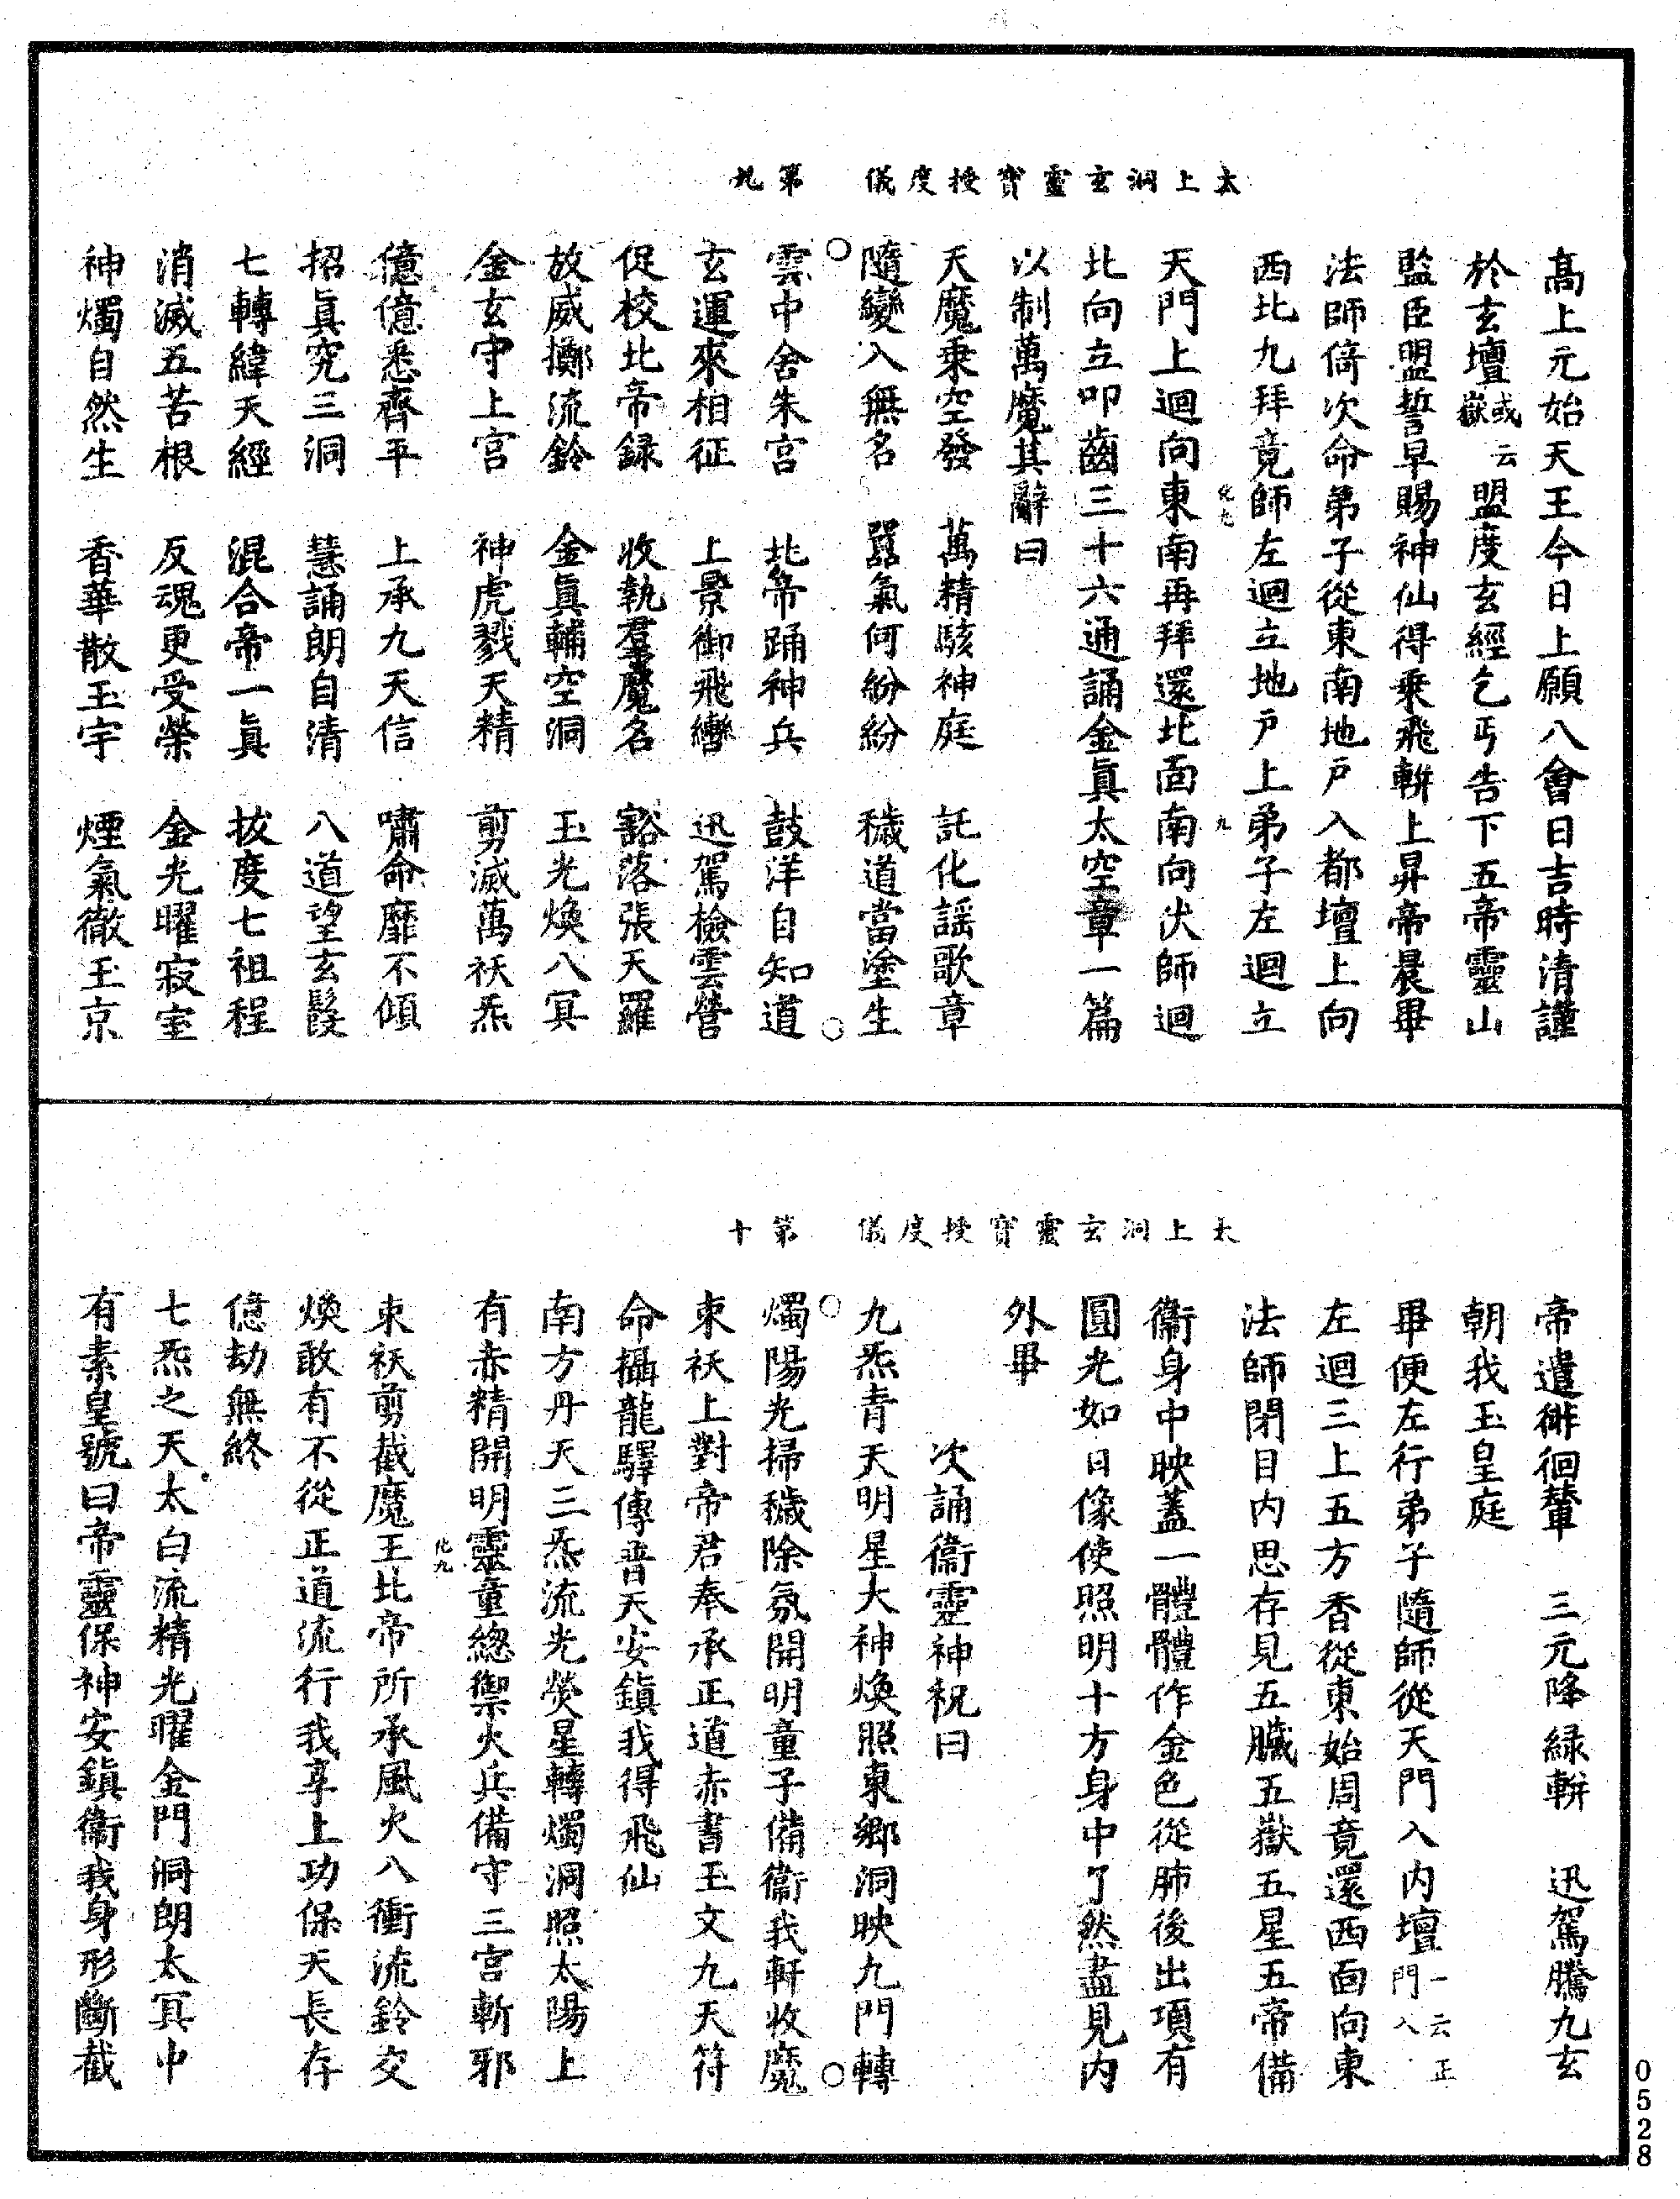 太上洞玄靈寶授度儀　第九
高上元始天王今日上願八會日吉時清謹
於玄壇或云嶽盟度玄經乞丐告下五帝靈山
監臣盟誓早賜神仙得乗飛軿上昇帝晨畢
法師倚次命弟子從東南地户入都壇上向
西北九拜竟師左迴立地户上弟子左迴立
化九　九
天門上迴向東南再拜還北面南向伏師迴
北向立叩齒三十六通誦金眞太空章一篇
以制萬魔其辭曰
天魔乗空發　萬精駭神庭　託化謡歌章
隨變入無名　嚚氣何紛紛　穢道當塗生
雲中舍朱宫　北帝踊神兵　鼓洋自知道
玄運來相征　上景御飛轡　迅駕檢雲營
促校北帝録　收執羣魔名　豁落張天羅
放威擲流鈴　金眞輔空洞　玉光煥八冥
金玄守上宫　神虎戮天精　剪滅萬祅炁
億億悉齊平　上承九天信　嘯命靡不傾
招眞究三洞　慧誦朗自清　八道望玄䰂
七轉緯天經　混合帝一眞　拔度七祖程
消滅五苦根　反魂更受榮　金光曜寂室
神燭自然生　香華散玉宇　煙氣徹玉京
太上洞玄靈寶授度儀　第十
帝遣徘徊輦　三元降緑軿　迅駕騰九玄
朝我玉皇庭
畢便左行弟子隨師從天門入内壇一云正門入
左迴三上五方香從東始周竟還西面向東
法師閉目内思存見五臟五嶽五星五帝備
衞身中映蓋一體體作金色從肺後出項有
圓光如日像使照明十方身中了然盡見内
外畢
次誦衞靈神祝曰
九炁青天明星大神煥照東鄉洞映九門轉
燭陽光掃穢除氛開明童子備衞我軒收魔
束祅上對帝君奉承正道赤書玉文九天符
命攝龍驛傳普天安鎮我得飛仙
南方丹天三炁流光熒星轉燭洞照太陽上
有赤精開明靈童總禦火兵備守三宫斬邪
化九
束祅剪截魔王北帝所承風火八衝流鈴交
煥敢有不從正道流行我享上功保天長存
億劫無終
七炁之天太白流精光曜金門洞朗太冥中
有素皇號曰帝靈保神安鎮衞我身形斷截
0528